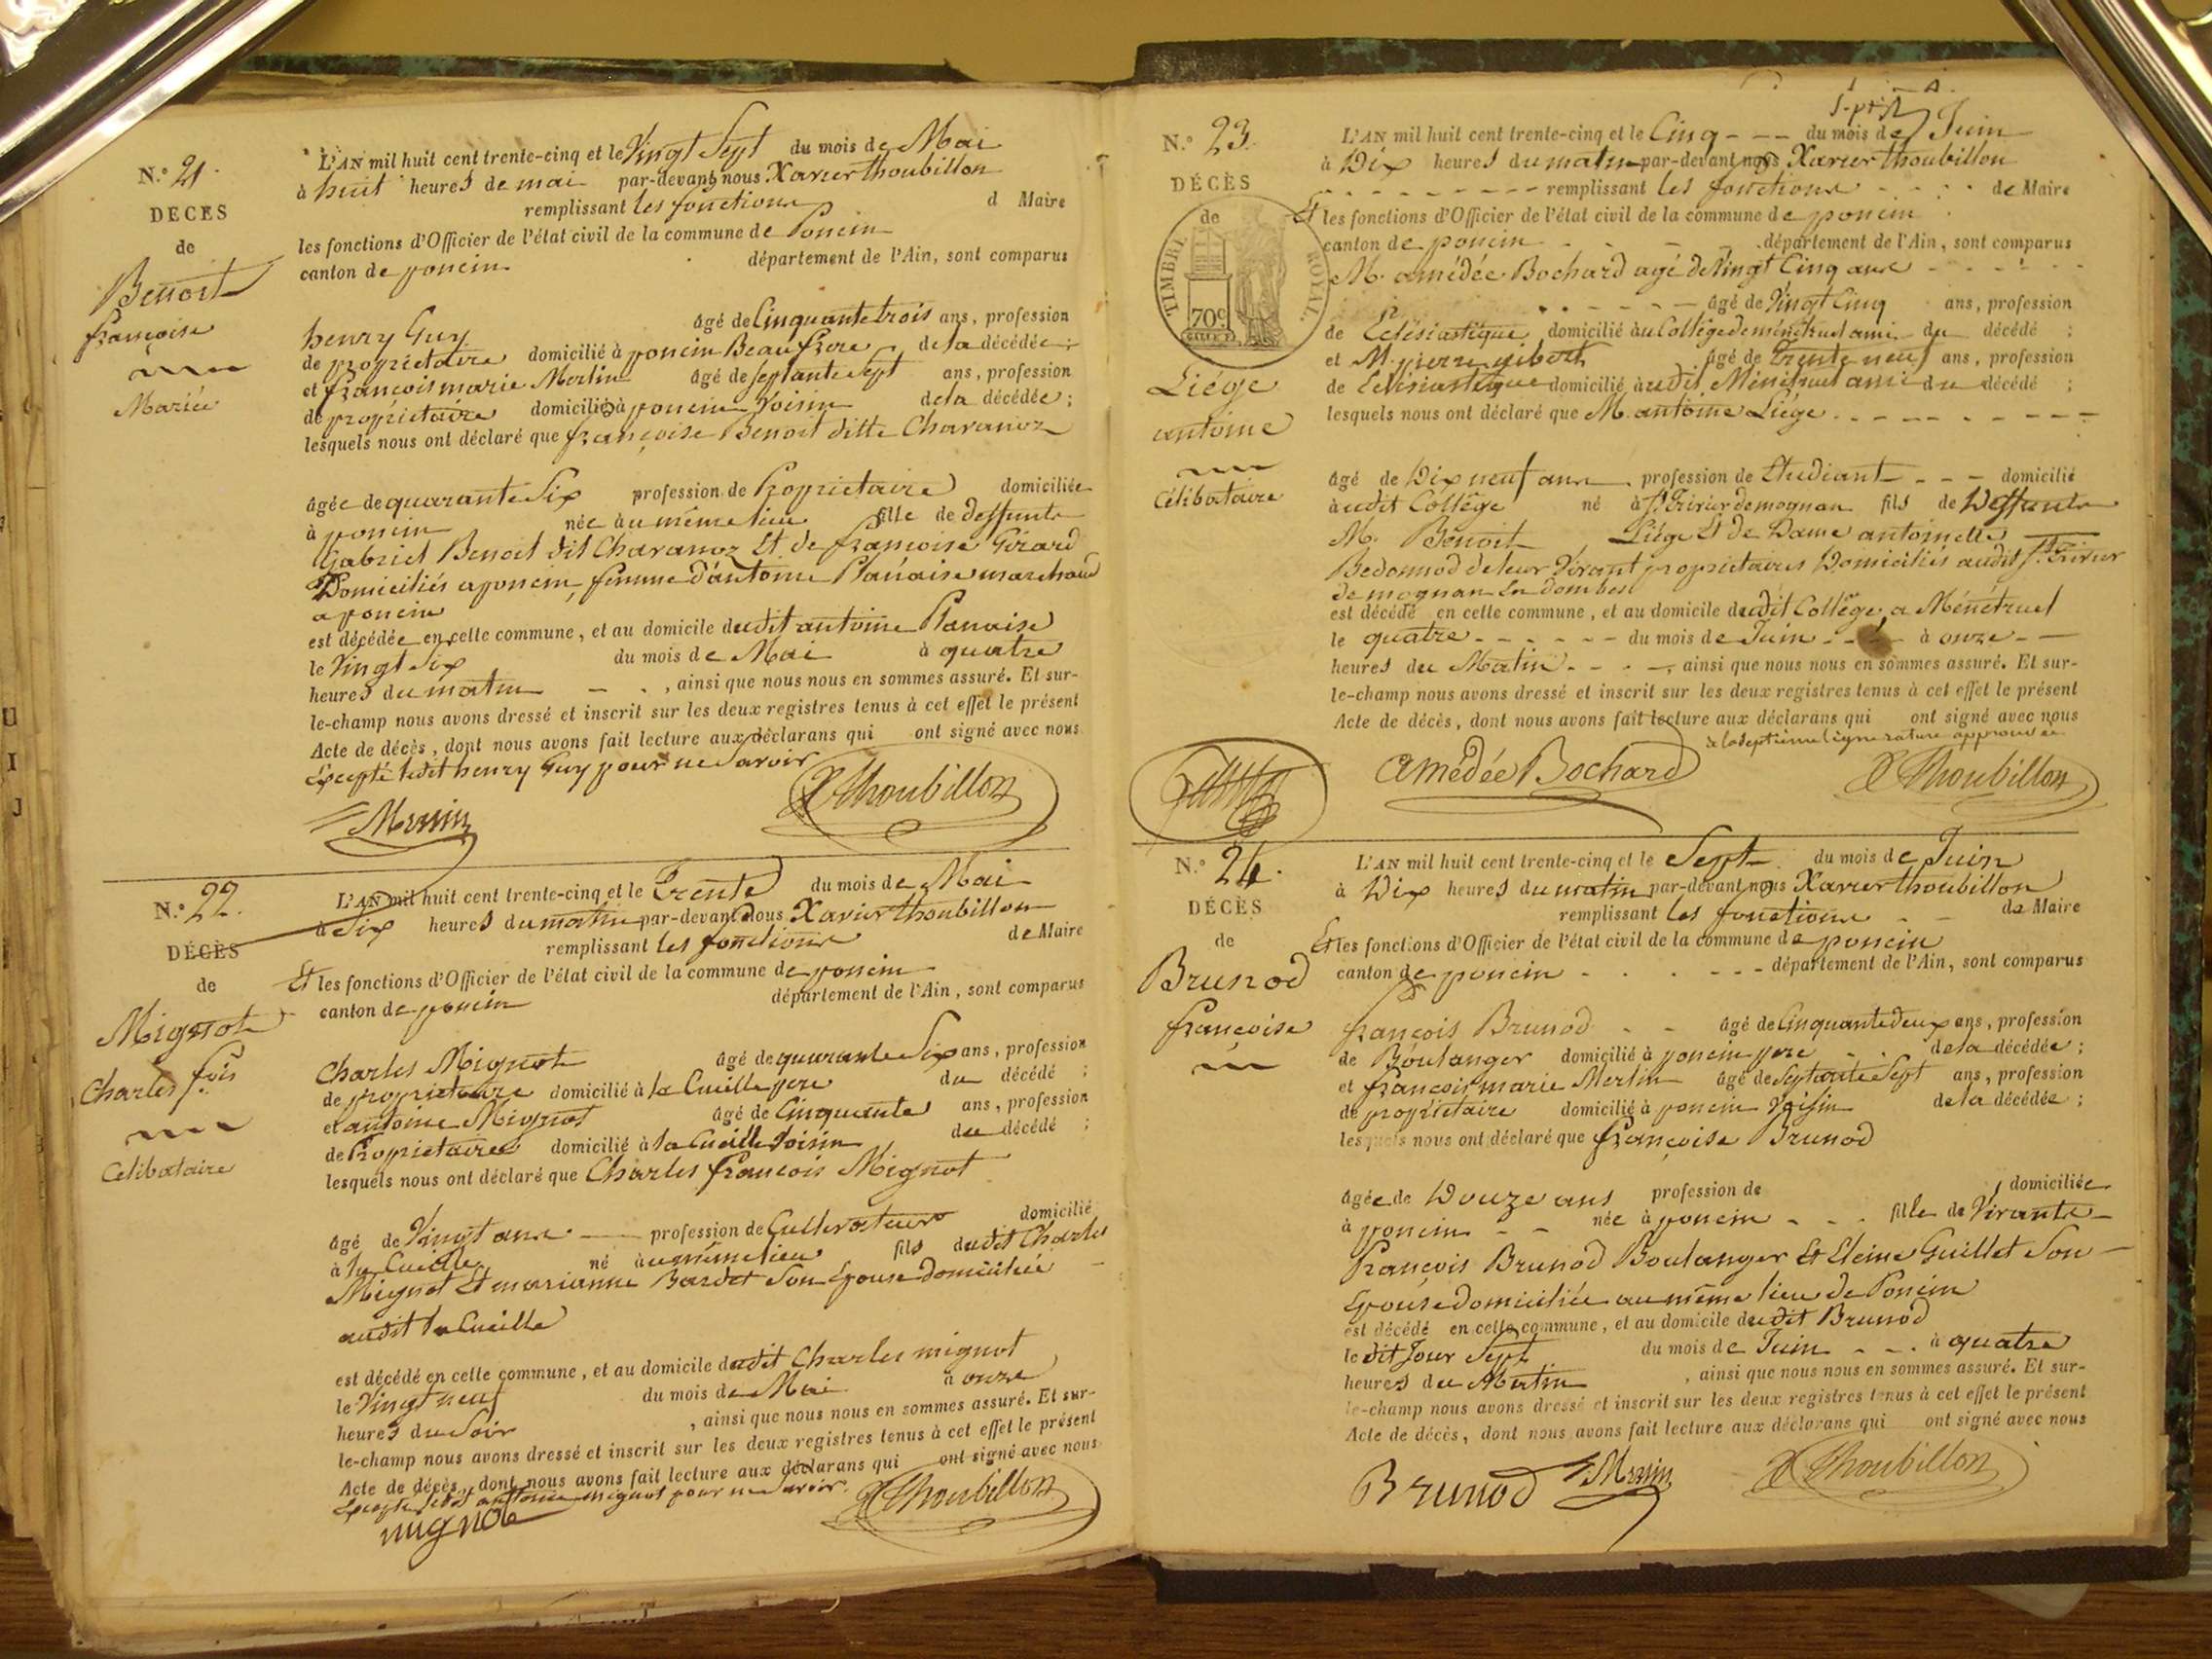 N.° 21.
DÉCÈS
de
Benoit
françoise
Mariée
L'AN mil huit cent trente-cinq et le Vingt Sept du mois de Mai
à huit heures de mai par-devant nous Xavier thoubillon
remplissant les fonctions d Maire
les fonctions d'Officier de l'état civil de la commune de Poncin
canton de poncin département de l'Ain, sont comparus
henry Guy âgé de Cinquante trois ans, profession
de propriétaire domicilié à poncin Beaufrere de la décédée ;
et françois marie Merlin âgé de septante Sept ans, profession
de propriétaire domicilié à poncin Voisin de la décédée ;
lesquels nous ont déclaré que françoise Benoit ditte Charanoz
âgée de quarante Six profession de Propriétaire domiciliée
à poncin née au même lieu fille de deffunts
Gabriel Benoit dit Charanoz Et de françoise Girard
Domiciliés a poncin, femme d'antoine Planaise marchand
a poncin
est décédée en cette commune, et au domicile dudit antoine Planaise
le Vingt Six du mois de Mai à quatre
heures du matin , ainsi que nous nous en sommes assuré. Et sur-
le-champ nous avons dressé et inscrit sur les deux registres tenus à cet effet le présent
Acte de décès, dont nous avons fait lecture aux déclarans qui ont signé avec nous
Excepté ledit henry Guy pour ne Savoir
Merlin X Thoubillon
N.° 22.
DÉCÈS
de
Mignot
Charles fois
Célibataire
L'AN mil huit cent trente-cinq et le Trente du mois de Mai
à Six heures du matin par-devant nous Xavier thoubillon
remplissant les fonctions de Maire
Et les fonctions d'Officier de l'état civil de la commune de poncin
canton de poncin département de l'Ain, sont comparus
Charles Mignot âgé de quarante Six ans, profession
de propriétaire domicilié à la Cueille pere du décédé ;
et antoine Mignot âgé de Cinquante ans, profession
de Propriétaire domicilié à la Cueille Voisin du décédé ;
lesquels nous ont déclaré que Charles françois Mignot
âgé de Vingt ans profession de Cultivateur domicilié
à la Cueille né au même lieu fils dudit Charles
Mignot Et marianne Bardet Son Epouse domiciliée
audit la Cueille
est décédé en cette commune, et au domicile dudit Charles mignot
le Vingt neuf du mois de Mai à onze
heures du Soir , ainsi que nous nous en sommes assuré. Et sur-
le-champ nous avons dressé et inscrit sur les deux registres tenus à cet effet le présent
Acte de décès, dont nous avons fait lecture aux déclarans qui ont signé avec nous
Excepté ledit antoine mignot pour ne Savoir.
mignot X Thoubillon
N.° 23.
DÉCÈS
de
TIMBRE ROYAL.
70c
Liége
antoine
Célibataire
L'AN mil huit cent trente-cinq et le Cinq du mois de Juin
à Dix heures du matin par-devant nous Xavier thoubillon
remplissant les fonctions de Maire
Et les fonctions d'Officier de l'état civil de la commune de poncin
canton de poncin département de l'Ain, sont comparus
M. amédée Bochard agé de Vingt Cinq ans
âgé de Vingt Cinq ans, profession
de Eclésiastique domicilié au Collége de ménétruel ami du décédé ;
et M. pierre gibert âgé de Trente neuf ans, profession
de Eclésiastique domicilié audit Ménétruel ami du décédé ;
lesquels nous ont déclaré que M. antoine Liége
âgé de Dix neuf ans profession de Etudiant domicilié
audit Collége né à St. Trivier de mognan fils de Deffunts
M. Benoit Liége Et de Dame antoinette
Bedonnod de leur Vivant propriétaires Domiciliés audit St. Trivier
de mognan En dombes
est décédé en cette commune, et au domicile dudit Collége, a Ménétruel
le quatre du mois de Juin à onze
heures du Matin , ainsi que nous nous en sommes assuré. Et sur-
le-champ nous avons dressé et inscrit sur les deux registres tenus à cet effet le présent
Acte de décès, dont nous avons fait lecture aux déclarans qui ont signé avec nous
à la septième ligne rature approuvée
Amédée Bochard X Thoubillon
N.° 24.
DÉCÈS
de
Brunod
françoise
L'AN mil huit cent trente-cinq et le Sept du mois de Juin
à Dix heures du matin par-devant nous Xavier thoubillon
remplissant les fonctions de Maire
Et les fonctions d'Officier de l'état civil de la commune de poncin
canton de poncin département de l'Ain, sont comparus
françois Brunod âgé de Cinquante deux ans, profession
de Boulanger domicilié à poncin pere de la décédée ;
et françois marie Merlin âgé de Septante Sept ans, profession
de propriétaire domicilié à poncin Voisin de la décédée ;
lesquels nous ont déclaré que françoise Brunod
âgée de Douze ans profession de domiciliée
à poncin née à poncin fille de Vivants
françois Brunod Boulanger Et Eleine Guillet Son
Epouse domiciliée au même lieu de Poncin
est décédé en cette commune, et au domicile dudit Brunod
le dit Jour Sept du mois de Juin à quatre
heures du Matin , ainsi que nous nous en sommes assuré. Et sur-
le-champ nous avons dressé et inscrit sur les deux registres tenus à cet effet le présent
Acte de décès, dont nous avons fait lecture aux déclarans qui ont signé avec nous
Brunod Merlin X Thoubillon